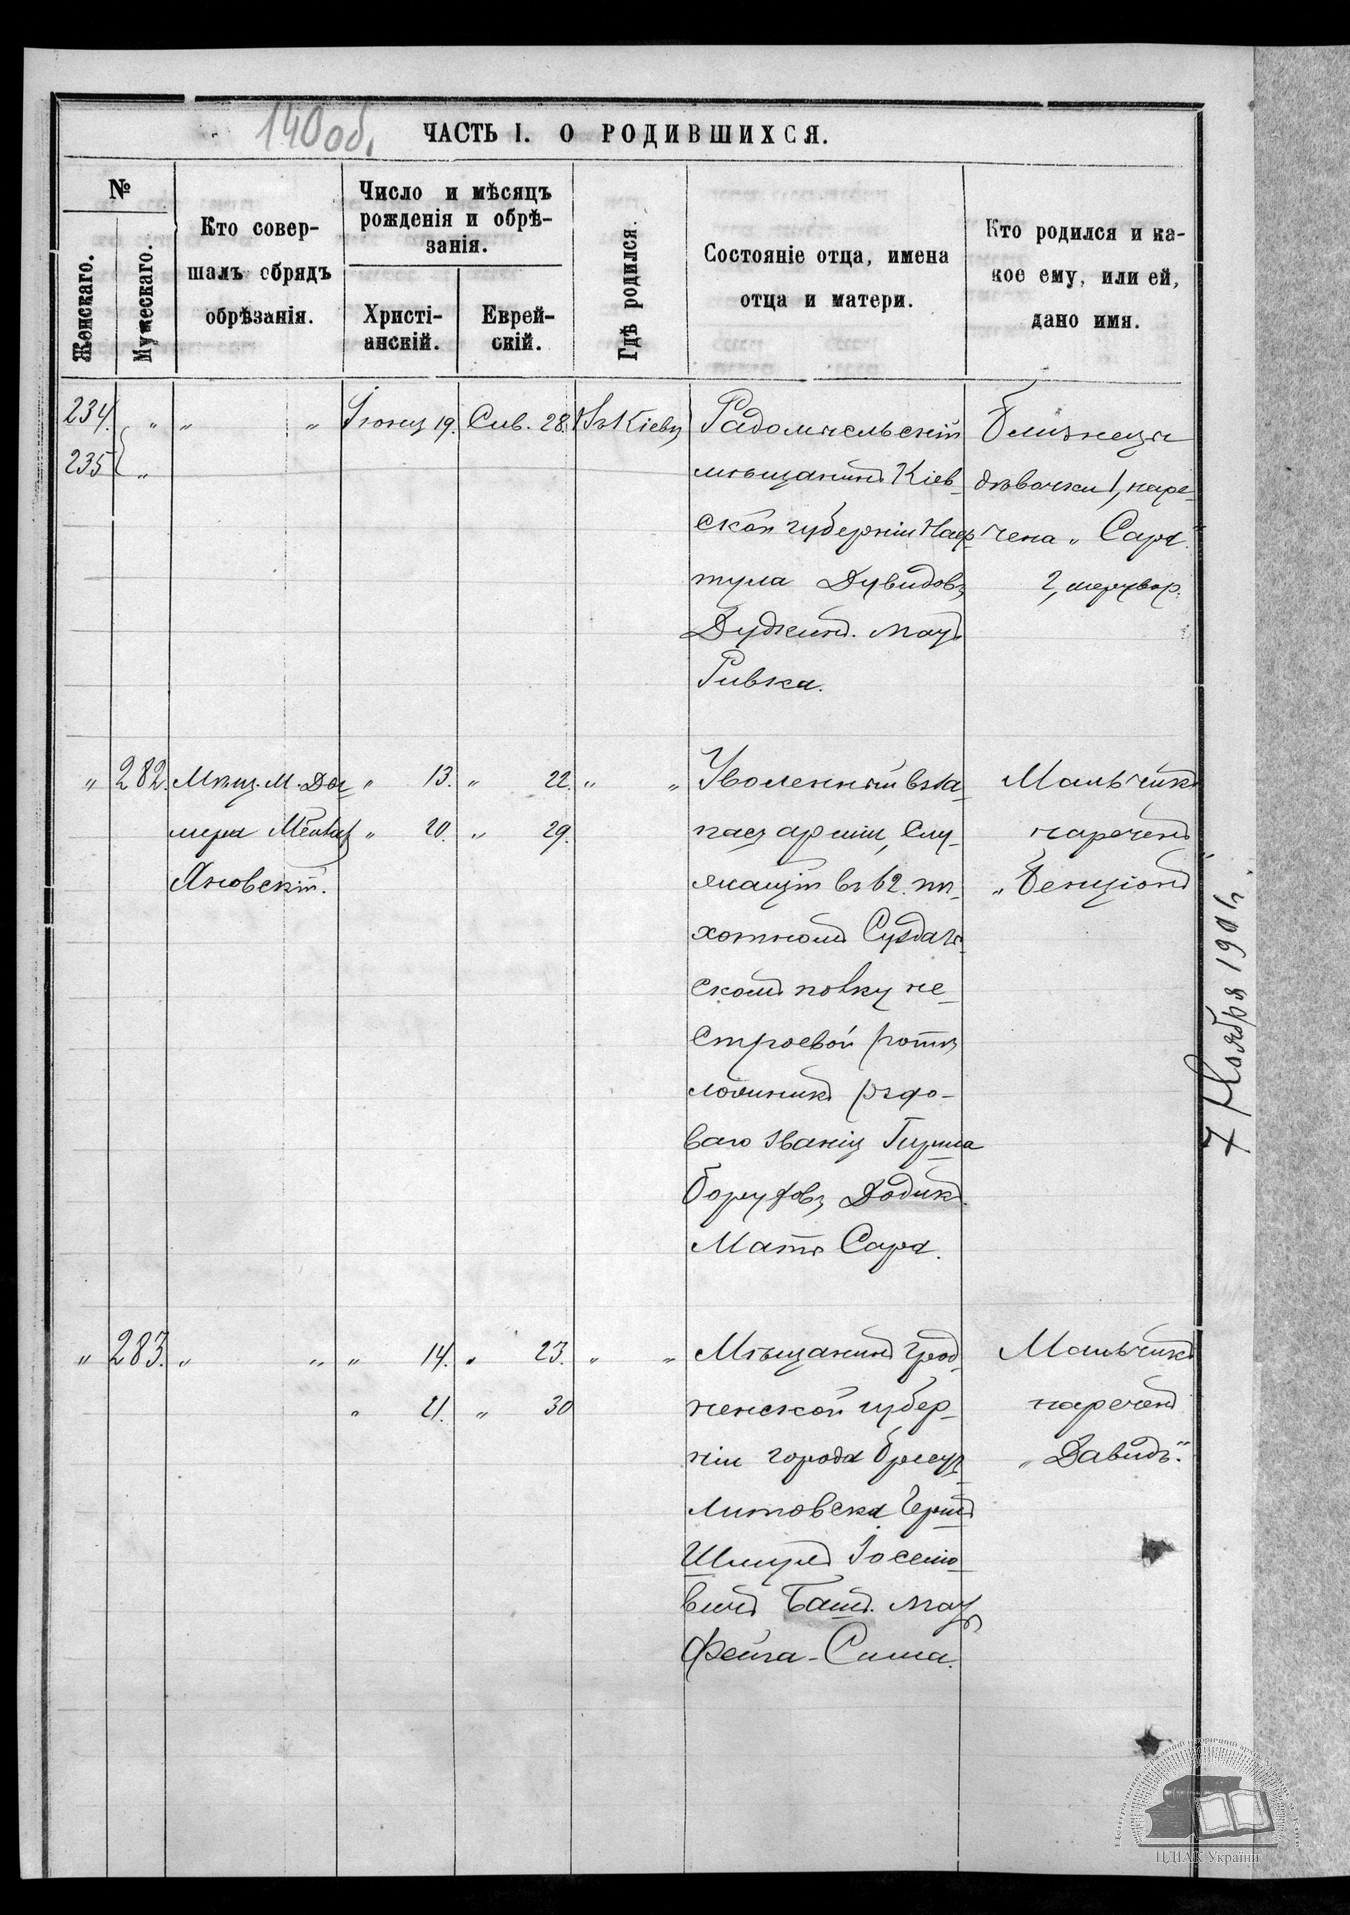 140 об.
ЧАСТЬ I. О РОДИВШИХСЯ.
№
Женскаго.
Мужескаго.
Кто совер-
шалъ обрядъ
обрѣзанія.
Число и мѣсяцъ
рожденія и обрѣ-
занія.
Христі-
анскій.
Еврей-
скій.
Гдѣ родился.
Состояніе отца, имена
отца и матери.
Кто родился и ка-
кое ему, или ей,
дано имя.
234. „ „ „ Іюня 19. Сив. 28. Въ Кіевѣ
235 „
Радомысльскій
мѣщанинъ Кіев-
ской губерніи Наф-
тула Дувидовъ
Дудкинъ. мать
Ривка.
Близнецы
дѣвочки 1, наре-
чена „Сара“
2, мертвор.
„ 282. Мѣщ. М. До-
Яновскій.
„ 13. „ 22. „ „
„ 20. „ 29.
Уволенный въ за-
пасъ арміи, слу-
жащій въ 62. пѣ-
хотномъ Суздаль-
скомъ полку не-
строевой роты
рядо-
ваго званія Гирша
Боруховъ Додикъ.
Мать Сара.
Мальчикъ
нареченъ
„Бенціонъ
„ 283. „ „ „ 14. „ 23. „ „
„ 21. „ 30
Мѣщанинъ Грод-
ненской губер-
ніи города Брестъ-
Литовска Герш
Шмулъ Іосело-
вичъ Башъ. мать
Фейга-Сима.
Мальчикъ
нареченъ
„Давидъ“.
7 Ноября 1901 г.
ЦДІАК України